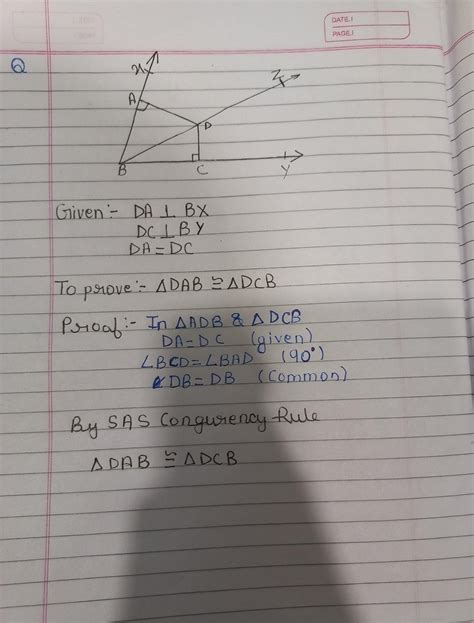 DATE.:
PAGE.:
Q
X
A
Z
D
B
C
Y
Given:- DA ⊥ BX
DC ⊥ BY
DA = DC
To prove:- △DAB ≅ △DCB
Proof:- In △ADB & △DCB
DA = DC (given)
∠BCD = ∠BAD (90°)
DB = DB (Common)
By SAS Congurency Rule
△DAB ≅ △DCB